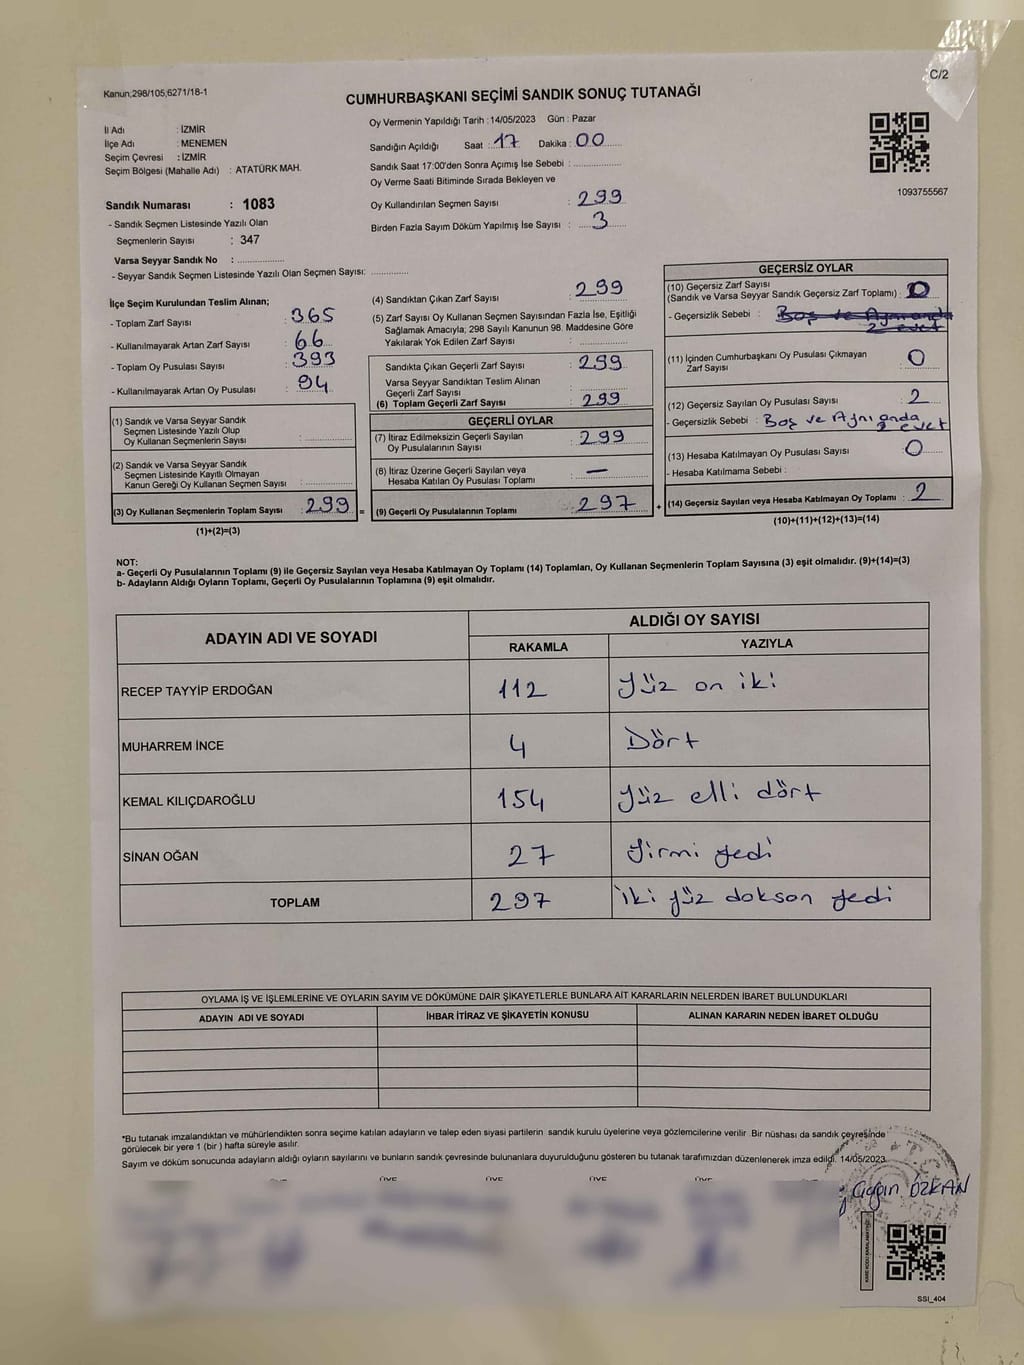 Kanun;298/105,6271/18-1
C/2
CUMHURBAŞKANI SEÇİMİ SANDIK SONUÇ TUTANAĞI
İl Adı : İZMİR
İlçe Adı : MENEMEN
Seçim Çevresi : İZMİR
Seçim Bölgesi (Mahalle Adı) : ATATÜRK MAH.
Sandık Numarası : 1083
- Sandık Seçmen Listesinde Yazılı Olan
Seçmenlerin Sayısı : 347
Varsa Seyyar Sandık No : ................
- Seyyar Sandık Seçmen Listesinde Yazılı Olan Seçmen Sayısı: ............
Oy Vermenin Yapıldığı Tarih : 14/05/2023 Gün : Pazar
Sandığın Açıldığı Saat : 17 Dakika : 00
Sandık Saat 17:00'den Sonra Açımış İse Sebebi : ................
Oy Verme Saati Bitiminde Sırada Bekleyen ve
Oy Kullandırılan Seçmen Sayısı : 299
Birden Fazla Sayım Döküm Yapılmış İse Sayısı : 3
1093755567
İlçe Seçim Kurulundan Teslim Alınan;
- Toplam Zarf Sayısı : 365
- Kullanılmayarak Artan Zarf Sayısı : 66
- Toplam Oy Pusulası Sayısı : 393
- Kullanılmayarak Artan Oy Pusulası : 94
(1) Sandık ve Varsa Seyyar Sandık
Seçmen Listesinde Yazılı Olup
Oy Kullanan Seçmenlerin Sayısı : ................
(2) Sandık ve Varsa Seyyar Sandık
Seçmen Listesinde Kayıtlı Olmayan
Kanun Gereği Oy Kullanan Seçmen Sayısı : ................
(3) Oy Kullanan Seçmenlerin Toplam Sayısı : 299 =
(1)+(2)=(3)
(4) Sandıktan Çıkan Zarf Sayısı : 299
(5) Zarf Sayısı Oy Kullanan Seçmen Sayısından Fazla İse, Eşitliği
Sağlamak Amacıyla; 298 Sayılı Kanunun 98. Maddesine Göre
Yakılarak Yok Edilen Zarf Sayısı : ................
Sandıkta Çıkan Geçerli Zarf Sayısı : 299
Varsa Seyyar Sandıktan Teslim Alınan
Geçerli Zarf Sayısı : ................
(6) Toplam Geçerli Zarf Sayısı : 299
GEÇERLİ OYLAR
(7) İtiraz Edilmeksizin Geçerli Sayılan
Oy Pusulalarının Sayısı : 299
(8) İtiraz Üzerine Geçerli Sayılan veya
Hesaba Katılan Oy Pusulası Toplamı : —
(9) Geçerli Oy Pusulalarının Toplamı : 297 +
GEÇERSİZ OYLAR
(10) Geçersiz Zarf Sayısı
(Sandık ve Varsa Seyyar Sandık Geçersiz Zarf Toplamı) : 0
- Geçersizlik Sebebi : Boş ve Aynı anda
2 evet
(11) İçinden Cumhurbaşkanı Oy Pusulası Çıkmayan
Zarf Sayısı : 0
(12) Geçersiz Sayılan Oy Pusulası Sayısı : 2
- Geçersizlik Sebebi : Boş ve Aynı anda
2 evet
(13) Hesaba Katılmayan Oy Pusulası Sayısı : 0
- Hesaba Katılmama Sebebi :
(14) Geçersiz Sayılan veya Hesaba Katılmayan Oy Toplamı : 2
(10)+(11)+(12)+(13)=(14)
NOT:
a- Geçerli Oy Pusulalarının Toplamı (9) ile Geçersiz Sayılan veya Hesaba Katılmayan Oy Toplamı (14) Toplamları, Oy Kullanan Seçmenlerin Toplam Sayısına (3) eşit olmalıdır. (9)+(14)=(3)
b- Adayların Aldığı Oyların Toplamı, Geçerli Oy Pusulalarının Toplamına (9) eşit olmalıdır.
ADAYIN ADI VE SOYADI
ALDIĞI OY SAYISI
RAKAMLA YAZIYLA
RECEP TAYYİP ERDOĞAN 112 Yüz on iki
MUHARREM İNCE 4 Dört
KEMAL KILIÇDAROĞLU 154 Yüz elli dört
SİNAN OĞAN 27 Yirmi yedi
TOPLAM 297 İki yüz dokson yedi
OYLAMA İŞ VE İŞLEMLERİNE VE OYLARIN SAYIM VE DÖKÜMÜNE DAİR ŞİKAYETLERLE BUNLARA AİT KARARLARIN NELERDEN İBARET BULUNDUKLARI
ADAYIN ADI VE SOYADI İHBAR İTİRAZ VE ŞİKAYETİN KONUSU ALINAN KARARIN NEDEN İBARET OLDUĞU
*Bu tutanak imzalandıktan ve mühürlendikten sonra seçime katılan adayların ve talep eden siyasi partilerin sandık kurulu üyelerine veya gözlemcilerine verilir .Bir nüshası da sandık çevresinde
görülecek bir yere 1 (bir ) hafta süreyle asılır.
Sayım ve döküm sonucunda adayların aldığı oyların sayılarını ve bunların sandık çevresinde bulunanlara duyurulduğunu gösteren bu tutanak tarafımızdan düzenlenerek imza edildi. 14/05/2023
ÜYE ÜYE ÜYE ÜYE ÜYE
T.C.
ÖZKAN
SSI_404